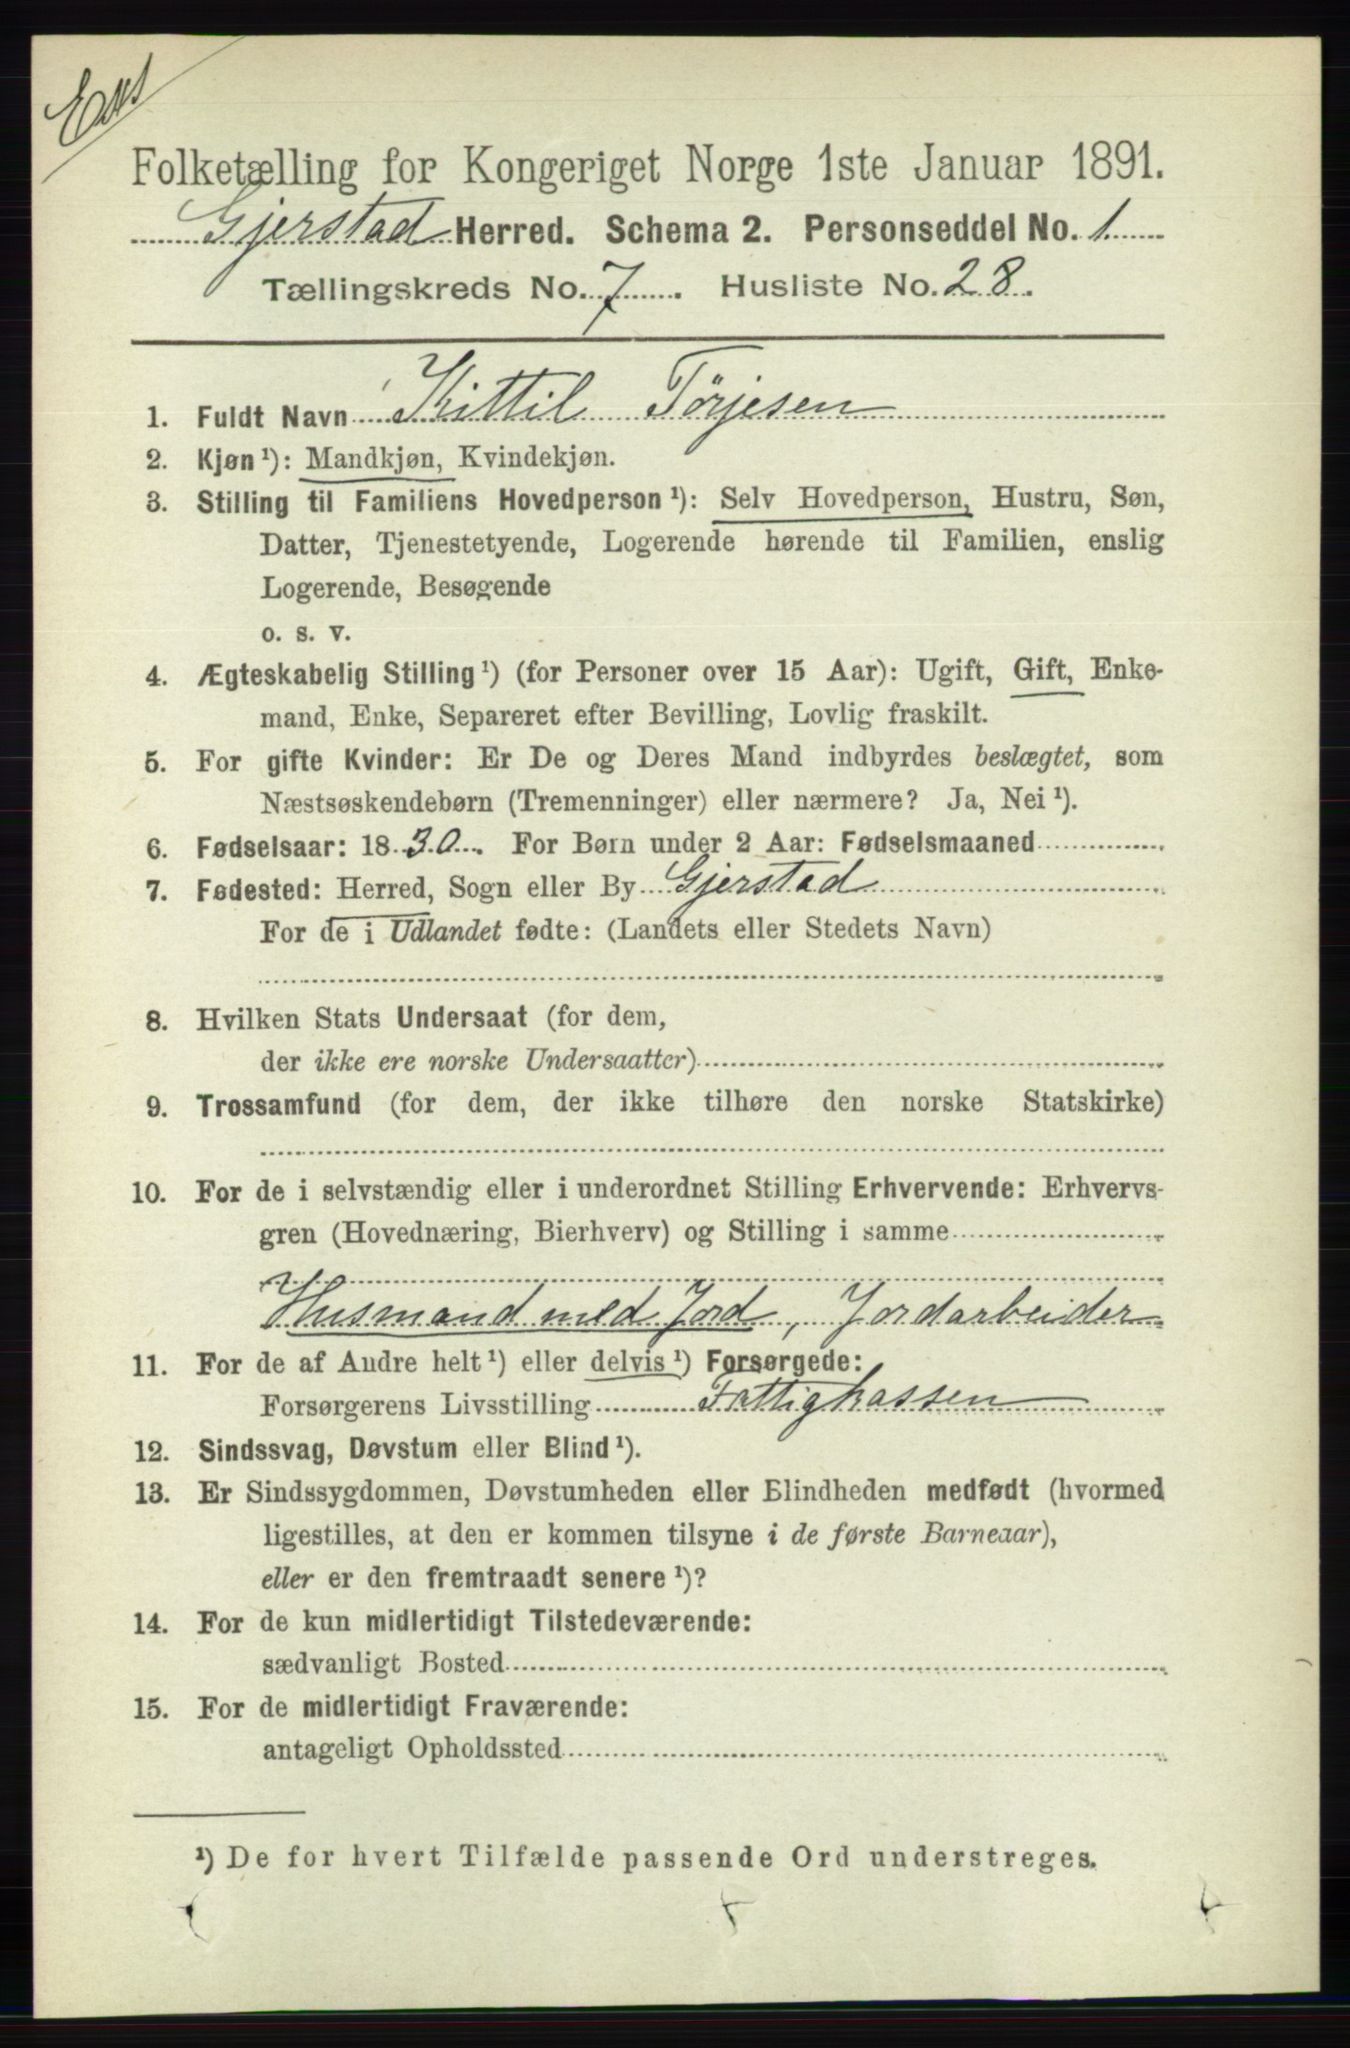 Folketælling for Kongeriget Norge 1ste Januar 1891.
Gjerstad Herred. Schema 2. Personseddel No. 1.
Tællingskreds No. 7. Husliste No. 28.
1. Fuldt Navn Kittil Tørjesen
2. Kjøn ¹): Mandkjøn, Kvindekjøn.
3. Stilling til Familiens Hovedperson ¹): Selv Hovedperson, Hustru, Søn,
Datter, Tjenestetyende, Logerende hørende til Familien, enslig
Logerende, Besøgende
o. s. v.
4. Ægteskabelig Stilling ¹) (for Personer over 15 Aar): Ugift, Gift, Enke-
mand, Enke, Separeret efter Bevilling, Lovlig fraskilt.
5. For gifte Kvinder: Er De og Deres Mand indbyrdes beslægtet, som
Næstsøskendebørn (Tremenninger) eller nærmere? Ja, Nei ¹).
6. Fødselsaar: 1830. For Børn under 2 Aar: Fødselsmaaned
7. Fødested: Herred, Sogn eller By Gjerstad
For de i Udlandet fødte: (Landets eller Stedets Navn)
8. Hvilken Stats Undersaat (for dem,
der ikke ere norske Undersaatter)
9. Trossamfund (for dem, der ikke tilhøre den norske Statskirke)
10. For de i selvstændig eller i underordnet Stilling Erhvervende: Erhvervs-
gren (Hovednæring, Bierhverv) og Stilling i samme
Husmand med Jord, Jordarbeider
11. For de af Andre helt ¹) eller delvis ¹) Forsørgede:
Forsørgerens Livsstilling Fattigkassen
12. Sindssvag, Døvstum eller Blind ¹).
13. Er Sindssygdommen, Døvstumheden eller Blindheden medfødt (hvormed
ligestilles, at den er kommen tilsyne i de første Barneaar),
eller er den fremtraadt senere ¹)?
14. For de kun midlertidigt Tilstedeværende:
sædvanligt Bosted
15. For de midlertidigt Fraværende:
antageligt Opholdssted
¹) De for hvert Tilfælde passende Ord understreges.